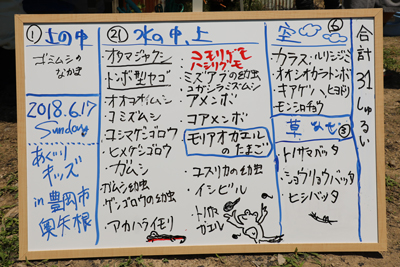 ① 土の中
ゴミムシの
なかま
2018.6.17
Sunday
あぐりキッズ
in 豊岡市
奥矢根
㉑ 水の中、上
・オタマジャクシ
・トンボ型ヤゴ
・オオコオイムシ
・コミズムシ
・コシマゲンゴロウ
・ヒメゲンゴロウ
・ガムシ
ガムシ幼虫
・ゲンゴロウの幼虫
・アカハライモリ
・コモリグモ
・ハシリグモ
・ミズアブの幼虫
・コガシラミズムシ
・アメンボ
・コアメンボ
モリアオガエル
のたまご
・ユスリカの幼虫
・インビル
・トノサマ
ガエル
空 ⑥
カラス・ルリシジミ
・オオシオカラトンボ
・キアゲハ・ヒヨドリ
・モンシロチョウ
草
・トノサマバッタ
・ショウリョウバッタ
・ヒシバッタ
合計31しゅるい